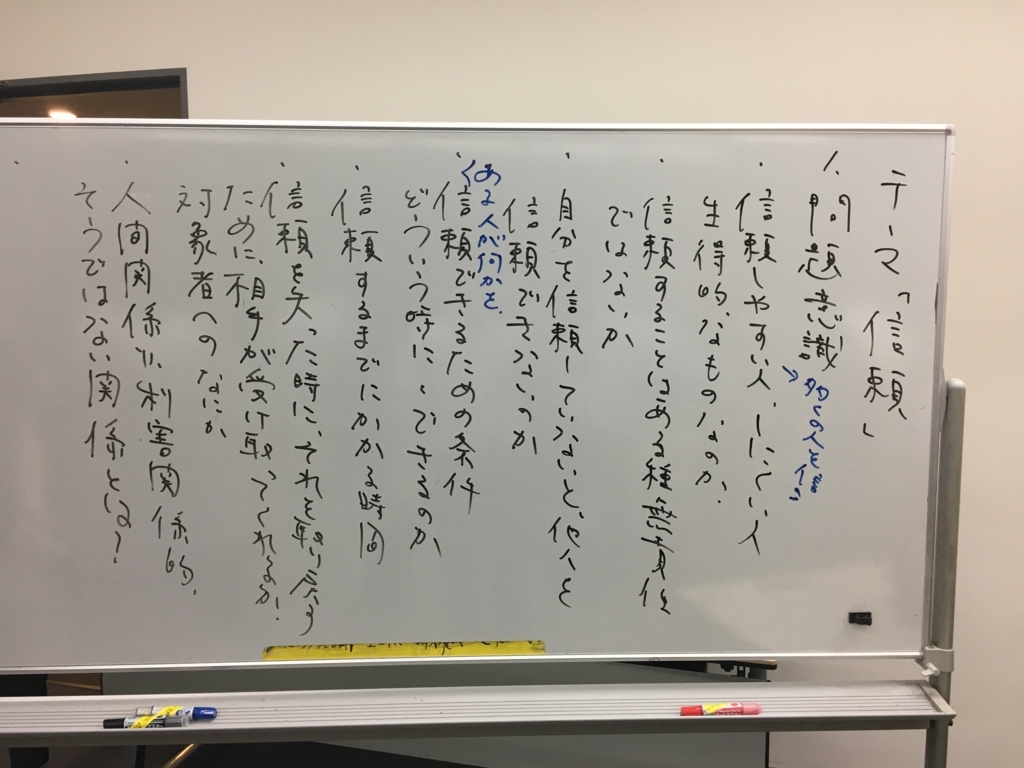 テーマ「信頼」
1. 問題意識
→多くの人を信
・信頼しやすい人、しにくい人
生得的なものなのか、
・信頼することはある種無責任
ではないか
・自分を信頼していないと、他人を
信頼できないのか
ある人が何かを、
・信頼できるための条件
どういう時に、できるのか
・信頼するまでにかかる時間
・信頼を失った時に、それを取り戻す
ために、相手が受け取ってくれるか、
対象者へのなにか
・人間関係が利害関係的、
そうではない関係とは?
・